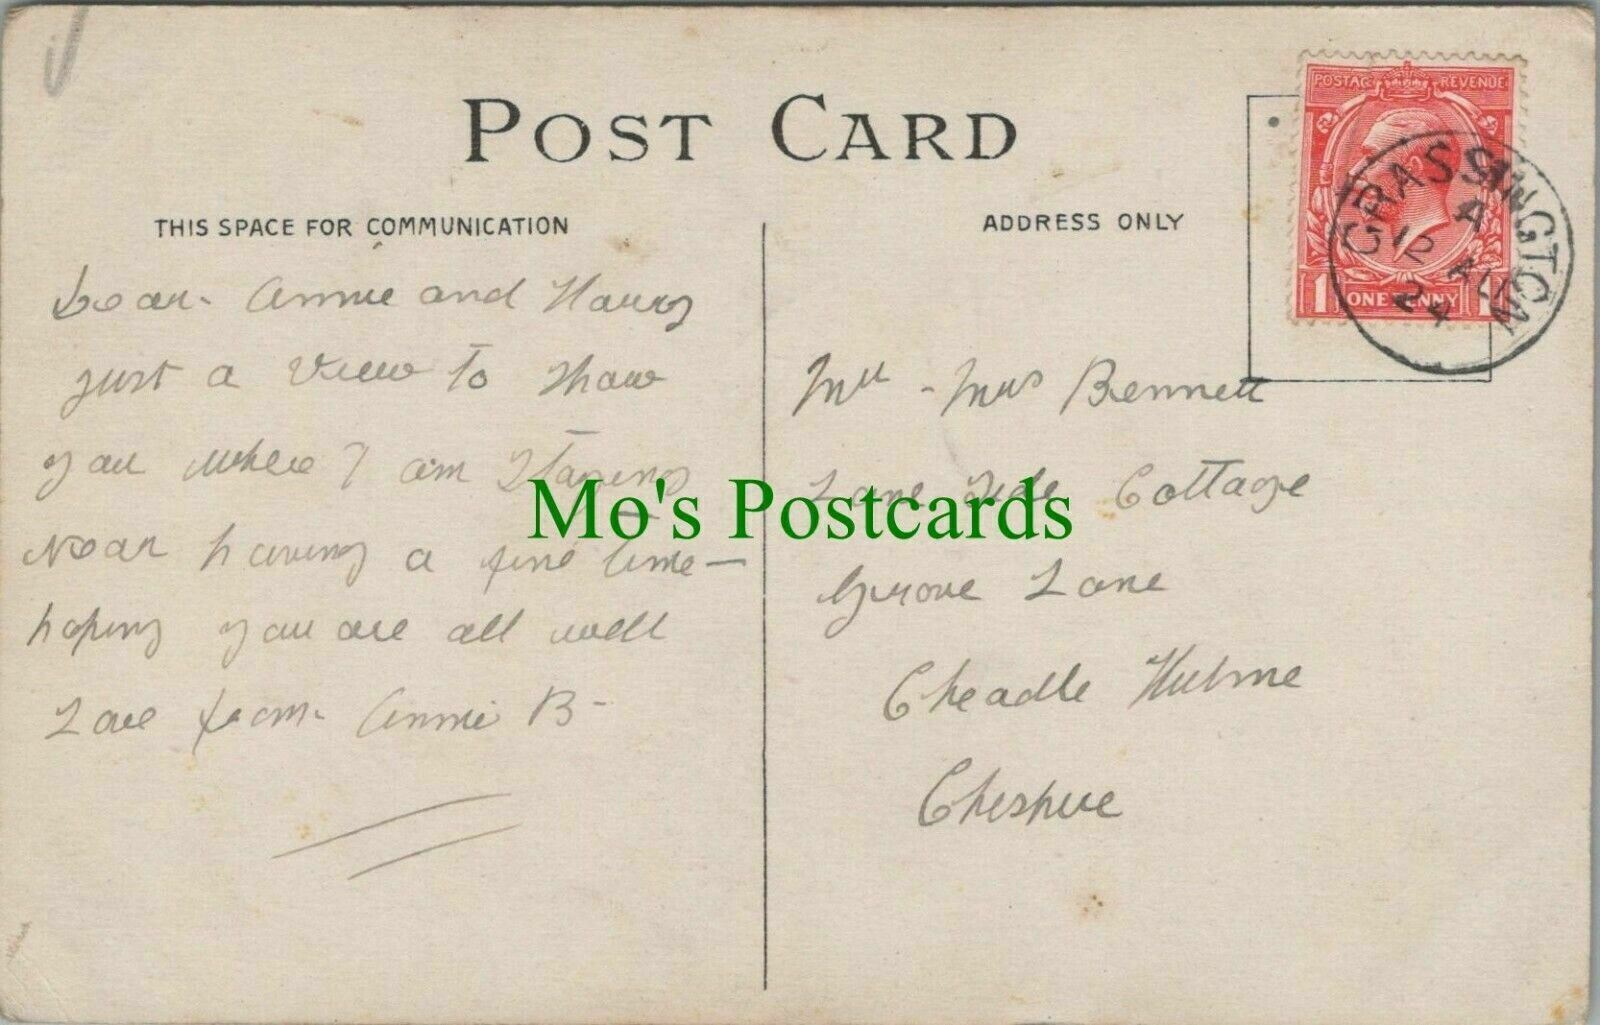 POST CARD
THIS SPACE FOR COMMUNICATION
Dear Annie and Harry
just a view to show
you where I am Staying
Near having a fine time —
hoping you are all well
Love from Annie B -
ADDRESS ONLY
POSTAGE REVENUE
1 ONE PENNY 1
GRASSINGTON
A
12 AU
24
Mr - Mrs Bennett
Lane Side Cottage
Grove Lane
Cheadle Hulme
Cheshire
Mo's Postcards